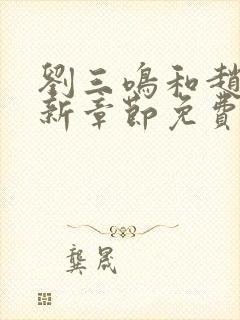 劉三鳴和趙
新章節免費
龔晟